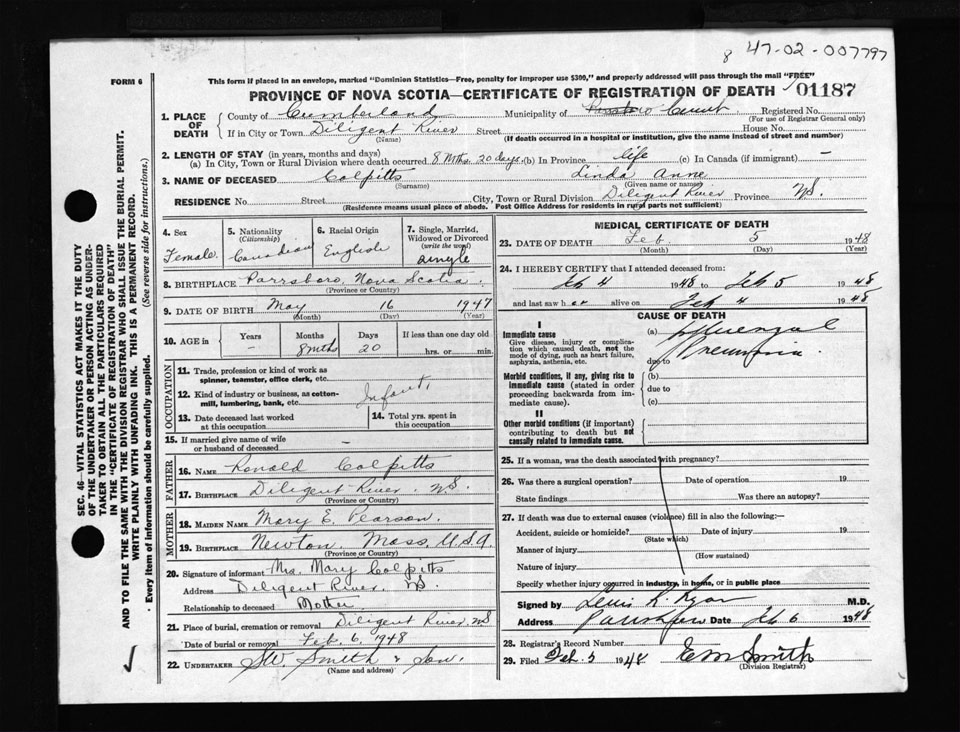 8 47-02-007797
FORM 6
This form if placed in an envelope, marked "Dominion Statistics—Free, penalty for improper use $300," and properly addressed will pass through the mail "FREE"
PROVINCE OF NOVA SCOTIA—CERTIFICATE OF REGISTRATION OF DEATH
01187
1. PLACE OF DEATH
County of Cumberland Municipality of Cumb Registered No.
(For use of Registrar General only)
If in City or Town Diligent River Street House No.
(Name) (If death occurred in a hospital or institution, give the name instead of street and number)
2. LENGTH OF STAY (in years, months and days)
(a) In City, Town or Rural Division where death occurred 8 Mths. 20 days (b) In Province life (c) In Canada (if immigrant) —
3. NAME OF DECEASED Colpitts Linda Anne
(Surname) (Given name or names)
RESIDENCE No. Street City, Town or Rural Division Diligent River Province NS.
(Residence means usual place of abode. Post Office Address for residents in rural parts not sufficient)
4. Sex
Female
5. Nationality
(Citizenship)
Canadian
6. Racial Origin
English
7. Single, Married, Widowed or Divorced
(write the word)
single
8. BIRTHPLACE Parrsboro, Nova Scotia.
(Province or Country)
9. DATE OF BIRTH May 16 1947
(Month) (Day) (Year)
10. AGE in
Years Months Days If less than one day old
8 mths 20 hrs. or min.
OCCUPATION
11. Trade, profession or kind of work as
spinner, teamster, office clerk, etc.
12. Kind of industry or business, as cotton-
mill, lumbering, bank, etc. Infant.
13. Date deceased last worked
at this occupation
14. Total yrs. spent in
this occupation
15. If married give name of wife
or husband of deceased —
FATHER
16. NAME Ronald Colpitts
17. BIRTHPLACE Diligent River. NS.
(Province or Country)
MOTHER
18. MAIDEN NAME Mary E. Pearson.
19. BIRTHPLACE Newton, Mass. U.S.A
(Province or Country)
20. Signature of informant Mrs. Mary Colpitts
Address Diligent River. NS.
Relationship to deceased Mother
21. Place of burial, cremation or removal Diligent River, NS
Date of burial or removal Feb. 6, 1948
22. UNDERTAKER SW. Smith & Son.
(Name and address)
MEDICAL CERTIFICATE OF DEATH
23. DATE OF DEATH Feb 5 1948
(Month) (Day) (Year)
24. I HEREBY CERTIFY that I attended deceased from:
Feb 4 1948 to Feb 5 1948
and last saw her alive on Feb 4 1948
CAUSE OF DEATH
I
Immediate cause
Give disease, injury or complica-
tion which caused death, not the
mode of dying, such as heart failure,
asphyxia, asthenia, etc.
(a) Influenzal
due to Pneumonia.
Morbid conditions, if any, giving rise to
immediate cause (stated in order
proceeding backwards from im-
mediate cause).
(b)
due to
(c)
II
Other morbid conditions (if important)
contributing to death but not
causally related to immediate cause.
25. If a woman, was the death associated with pregnancy?
26. Was there a surgical operation? Date of operation 19
State findings Was there an autopsy?
27. If death was due to external causes (violence) fill in also the following:—
Accident, suicide or homicide? Date of injury 19
(State which)
Manner of injury
(How sustained)
Nature of injury
Specify whether injury occurred in industry, in home, or in public place
Signed by M.D.
Address Date Feb 6 1948
28. Registrar's Record Number
29. Filed Feb. 5 1948. E M Smith
(Division Registrar)
SEC. 46—VITAL STATISTICS ACT MAKES IT THE DUTY
OF THE UNDERTAKER OR PERSON ACTING AS UNDER-
TAKER TO OBTAIN ALL THE PARTICULARS REQUIRED
IN THE "CERTIFICATE OF REGISTRATION OF DEATH"
AND TO FILE THE SAME WITH THE DIVISION REGISTRAR WHO SHALL ISSUE THE BURIAL PERMIT.
WRITE PLAINLY WITH UNFADING INK. THIS IS A PERMANENT RECORD.
Every item of information should be carefully supplied. (See reverse side for instructions.)